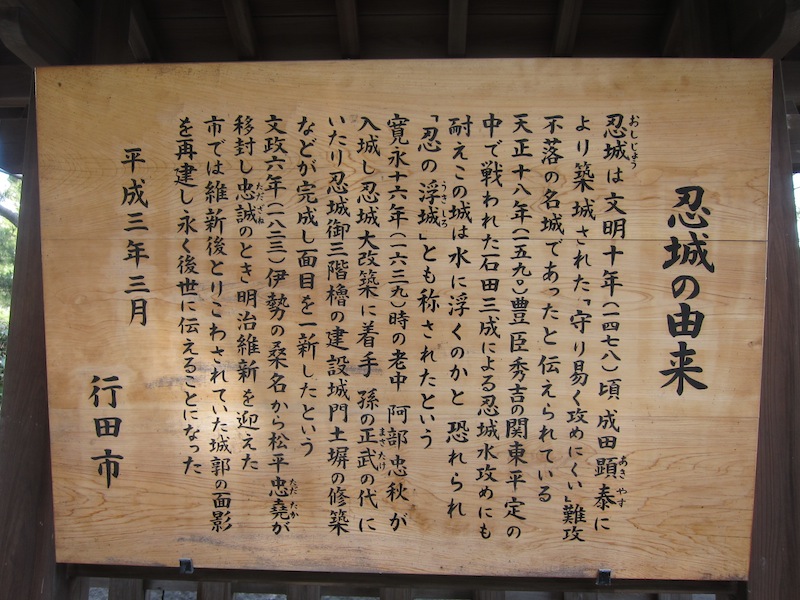 忍城の由来
忍城は文明十年(一四七八)頃 成田顕泰に
おしじょう
あきやす
より築城された「守り易く攻めにくい」難攻
不落の名城であったと伝えられている
天正十八年(一五九〇)豊臣秀吉の関東平定の
中で戦われた石田三成による忍城水攻めにも
耐えこの城は水に浮くのかと 恐れられ
「忍の浮城」とも称されたという
うきしろ
寛永十六年(一六三九)時の老中 阿部忠秋が
入城し忍城大改築に着手 孫の正武の代に
まさたけ
いたり忍城御三階櫓の建設城門土塀の修築
などが完成し面目を一新したという
文政六年(一八二三)伊勢の桑名から松平忠堯が
ただたか
移封し忠誠のとき明治維新を迎えた
ただざね
市では維新後とりこわされていた城郭の面影
を再建し永く後世に伝えることになった
平成三年三月
行田市